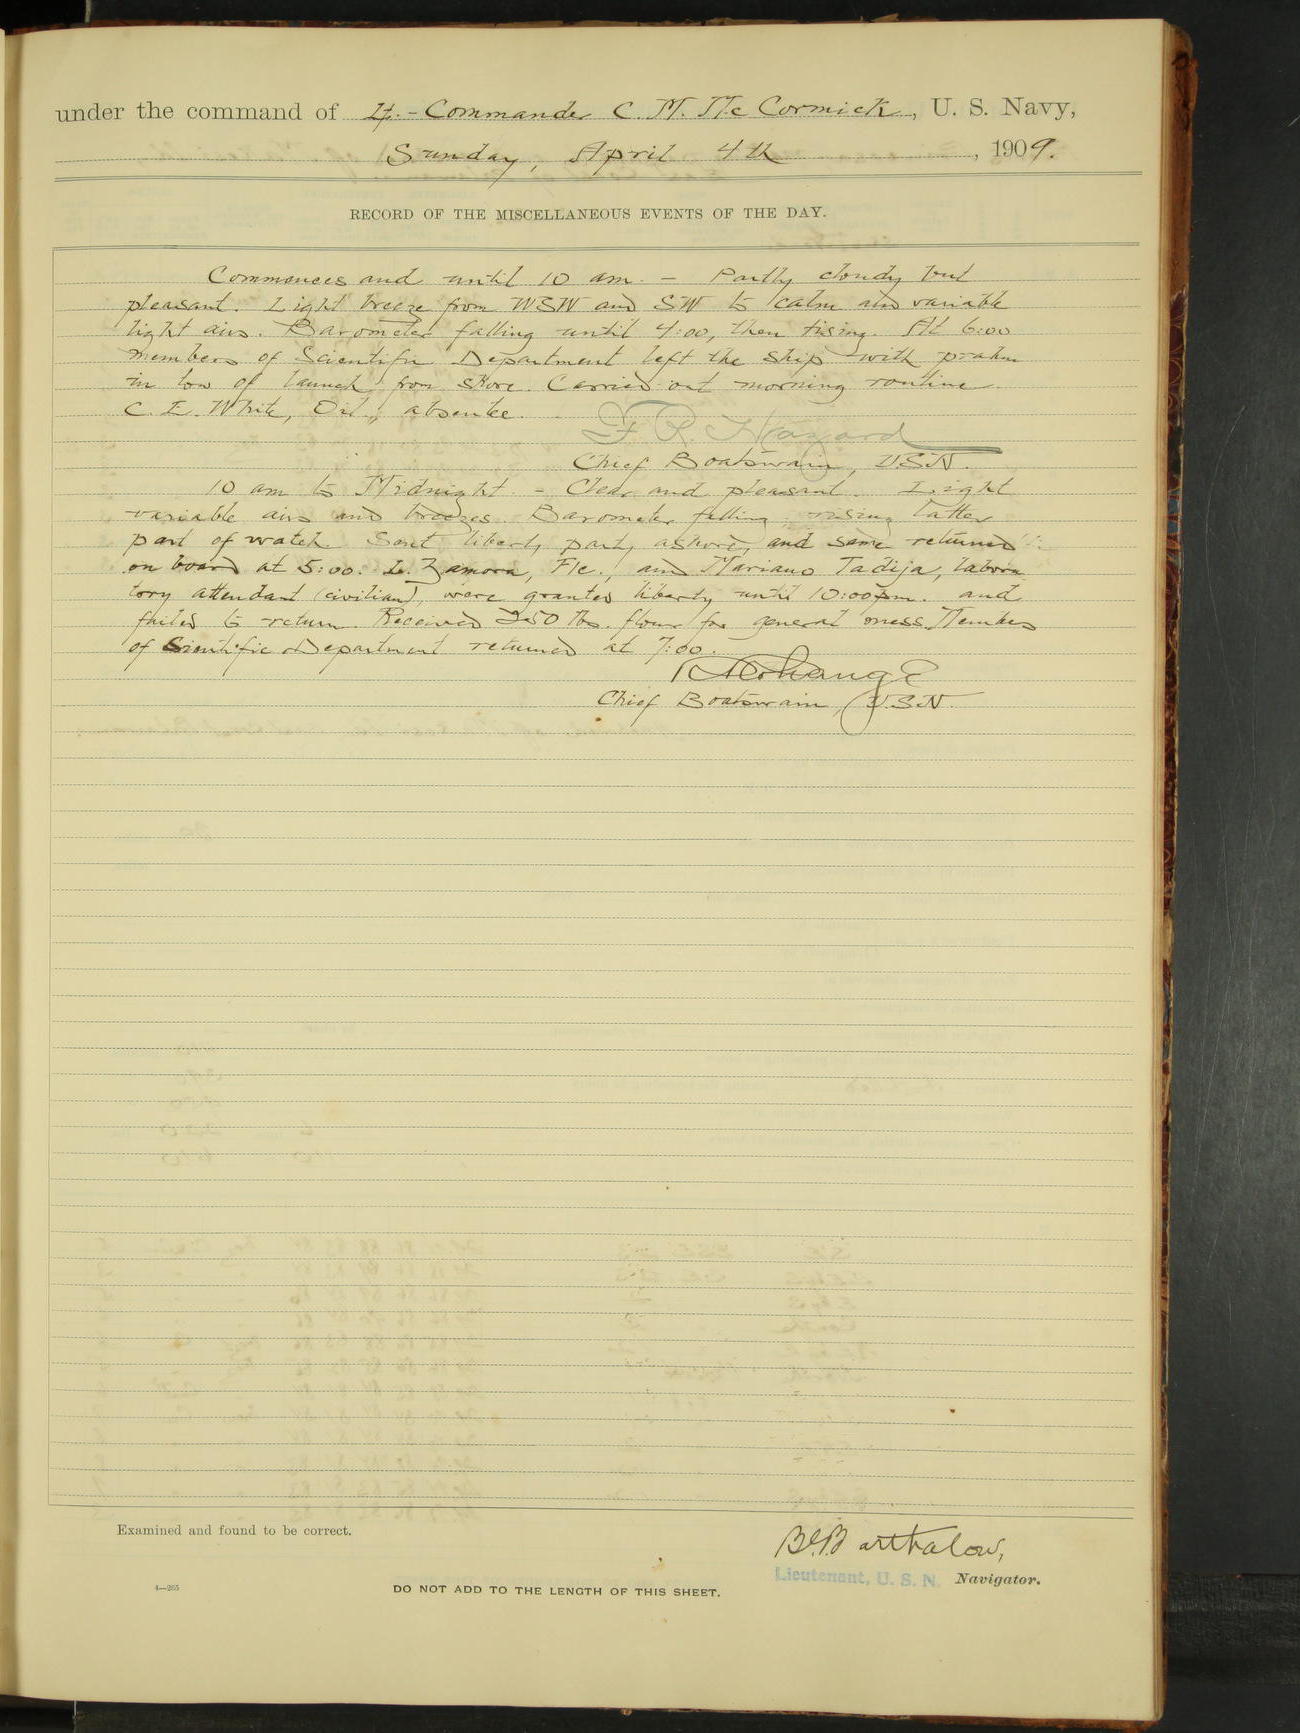 under the command of Lt.-Commander C. M. McCormick, U. S. Navy,
Sunday, April 4th, 1909.
RECORD OF THE MISCELLANEOUS EVENTS OF THE DAY.
Commences and until 10 am. - Partly cloudy but
pleasant. Light breeze from WSW and SW to calm and variable
light airs. Barometer falling until 4:00, then rising. At 6:00
members of Scientific Department left the ship with prahm
in tow of launch from shore. Carried out morning routine.
C. E. White, Oil., absentee.
F R. Hazard
Chief Boatswain, USN.
10 am to Midnight. - Clear and pleasant. Light
variable airs and breezes. Barometer falling, rising latter
part of watch. Sent liberty party ashore, and same returned
on board at 5:00. L. Zamora, F1c., and Mariano Tadija, labora
tory attendant (civilian), were granted liberty until 10:00 pm. and
failed to return. Received 250 lbs. flour for general mess. Members
of Scientific Department returned at 7:00.
Chief Boatswain, U.S.N.
Examined and found to be correct.
B. Barthalow,
Lieutenant, U. S. N. Navigator.
4—265
DO NOT ADD TO THE LENGTH OF THIS SHEET.